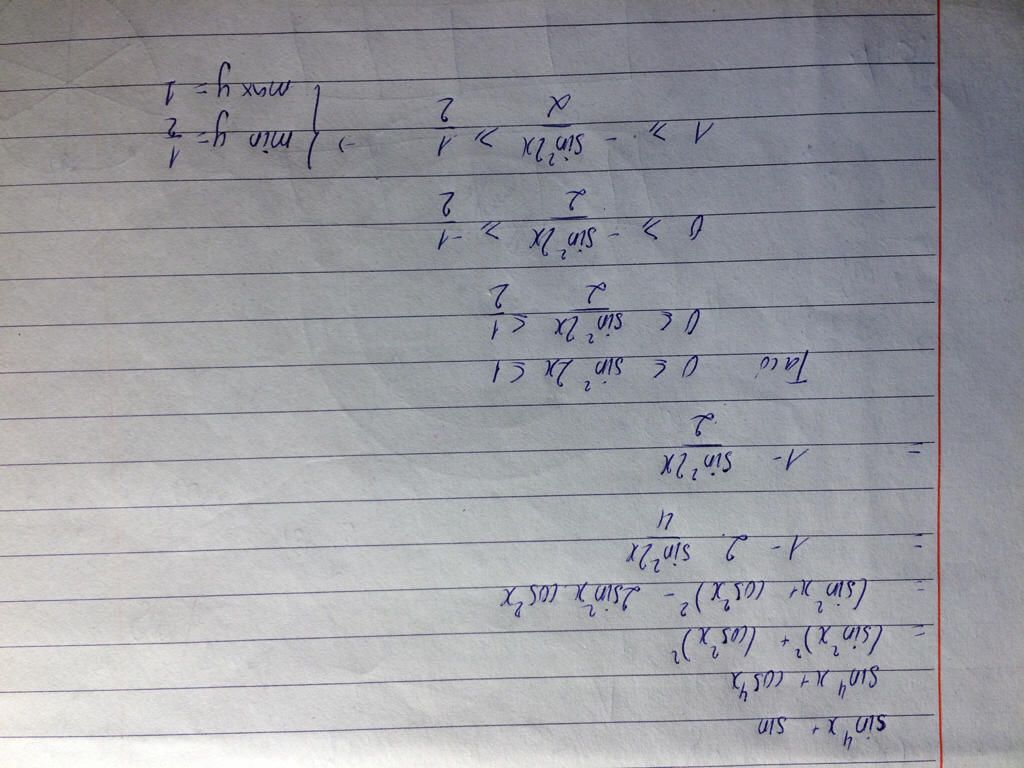 sin⁴x + sin
sin⁴x + cos⁴x
= (sin²x)² + (cos²x)²
= (sin²x + cos²x)² - 2sin²x cos²x
= 1 - 2. sin²2x/4
= 1 - sin²2x/2
Ta có 0 ≤ sin²2x ≤ 1
0 ≤ sin²2x/2 ≤ 1/2
0 ≥ - sin²2x/2 ≥ -1/2
1 ≥ - sin²2x/2 ≥ 1/2 → { min y = 1/2
max y = 1